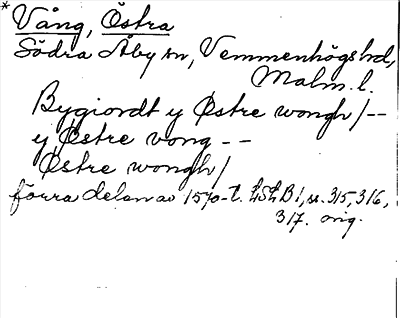 * Vång, Östra
Södra Åby sn, Vemmenhögs hd,
Malm. l.
Bygiordt y Østre wongh /--
y Østre vong --
Østre wongh /
förra delen av 1570-t. LSLB 1, s. 315, 316,
317. orig.